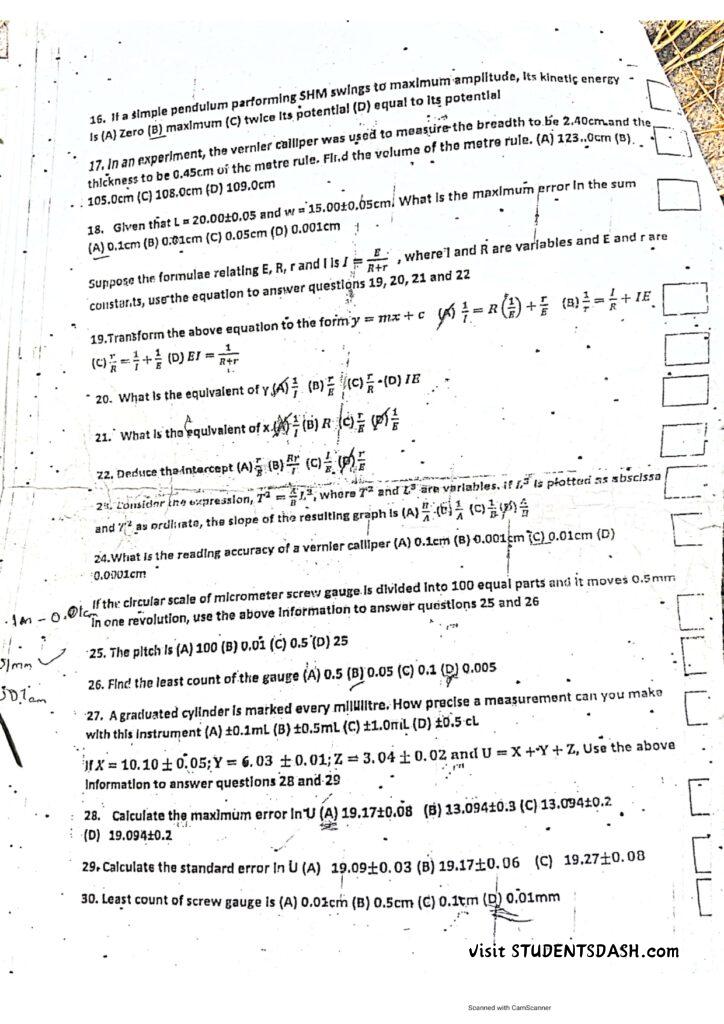 16. If a simple pendulum parforming SHM swings to maximum amplitude, its kinetic energy
is (A) Zero (B) maximum (C) twice its potential (D) equal to its potential
17. In an experiment, the vernier calliper was used to measure the breadth to be 2.40cm and the
thickness to be 0.45cm of the metre rule. Find the volume of the metre rule. (A) 123..0cm (B)
105.0cm (C) 108.0cm (D) 109.0cm
18. Given that L = 20.00±0.05 and w = 15.00±0.05cm. What is the maximum error in the sum
(A) 0.1cm (B) 0.01cm (C) 0.05cm (D) 0.001cm
Suppose the formulae relating E, R, r and I is I = E/(R+r), where I and R are variables and E and r are
constants, use the equation to answer questions 19, 20, 21 and 22
19.Transform the above equation to the form y = mx + c (A) 1/I = R(1/E) + r/E (B) 1/r = I/R + IE
(C) r/R = 1/I + 1/E (D) EI = 1/(R+r)
20. What is the equivalent of y (A) 1/I (B) r/E (C) r/R (D) IE
21. What is the equivalent of x (A) 1/I (B) R (C) r/E (D) 1/E
22. Deduce the intercept (A) (B) (C) (D) r/E
Consider the expression, T² = A/B L³, where T² and L³ are variables. if L³ is plotted as abscissa
and T² as ordinate, the slope of the resulting graph is (A) B/A (B) 1/A (C) 1/B (D) A/B
24.What is the reading accuracy of a vernier calliper (A) 0.1cm (B) 0.001cm (C) 0.01cm (D)
0.0001cm
If the circular scale of micrometer screw gauge is divided into 100 equal parts and it moves 0.5mm
in one revolution, use the above information to answer questions 25 and 26
25. The pitch is (A) 100 (B) 0.01 (C) 0.5 (D) 25
26. Find the least count of the gauge (A) 0.5 (B) 0.05 (C) 0.1 (D) 0.005
27. A graduated cylinder is marked every millilitre. How precise a measurement can you make
with this instrument (A) ±0.1mL (B) ±0.5mL (C) ±1.0mL (D) ±0.5 cL
If X = 10.10 ± 0.05; Y = 6.03 ± 0.01; Z = 3.04 ± 0.02 and U = X + Y + Z, Use the above
information to answer questions 28 and 29
28. Calculate the maximum error in U (A) 19.17±0.08 (B) 13.094±0.3 (C) 13.094±0.2
(D) 19.094±0.2
29. Calculate the standard error in U (A) 19.09±0.03 (B) 19.17±0.06 (C) 19.27±0.08
30. Least count of screw gauge is (A) 0.01cm (B) 0.5cm (C) 0.1cm (D) 0.01mm
visit STUDENTSDASH.com
Scanned with CamScanner